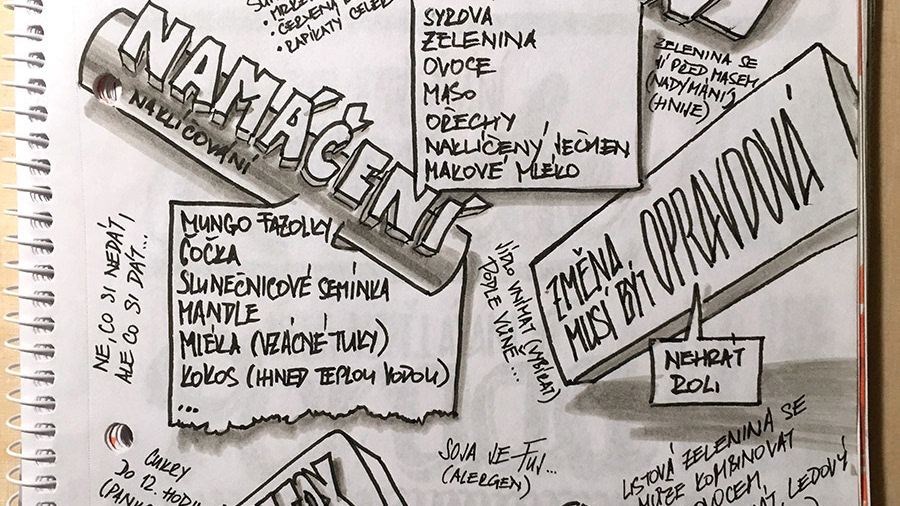 ČERVENÁ
ŘAPÍKATÝ CELER
SYROVÁ
ZELENINA
OVOCE
MASO
OŘECHY
NAKLÍČENÝ JEČMEN
MAKOVÉ MLÉKO
ZELENINA SE
JÍ PŘED MASEM
(NADÝMÁNÍ)
(HNIJE)
NAMÁČENÍ
NAKLÍČOVÁNÍ
MUNGO FAZOLKY
ČOČKA
SLUNEČNICOVÉ SEMÍNKA
MANDLE
MLÉKA (VZÁCNÉ TUKY)
KOKOS (IHNED TEPLOU VODOU)
...
NE, CO SI NEDÁT,
ALE CO SI DÁT...
JÍDLO VNÍMAT (VYBÍRAT)
PODLE VŮNĚ...
ZMĚNA
MUSÍ BÝT OPRAVDOVÁ
NEHRÁT
ROLI
SOJA JE FUJ...
(ALERGEN)
CUKRY
DO 12. HODIN
LISTOVÁ ZELENINA SE
MŮŽE KOMBINOVAT
OVOCEM,
LEDOVÝ